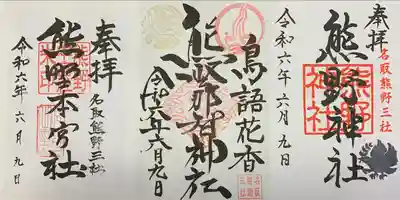 奉拝
名取熊野三社
熊野神社
熊野神社
令和六年六月九日
鳥語花香
熊野那智神社
令和六年六月九日
奉拝
熊野本宮社
名取熊野三社
令和六年六月九日